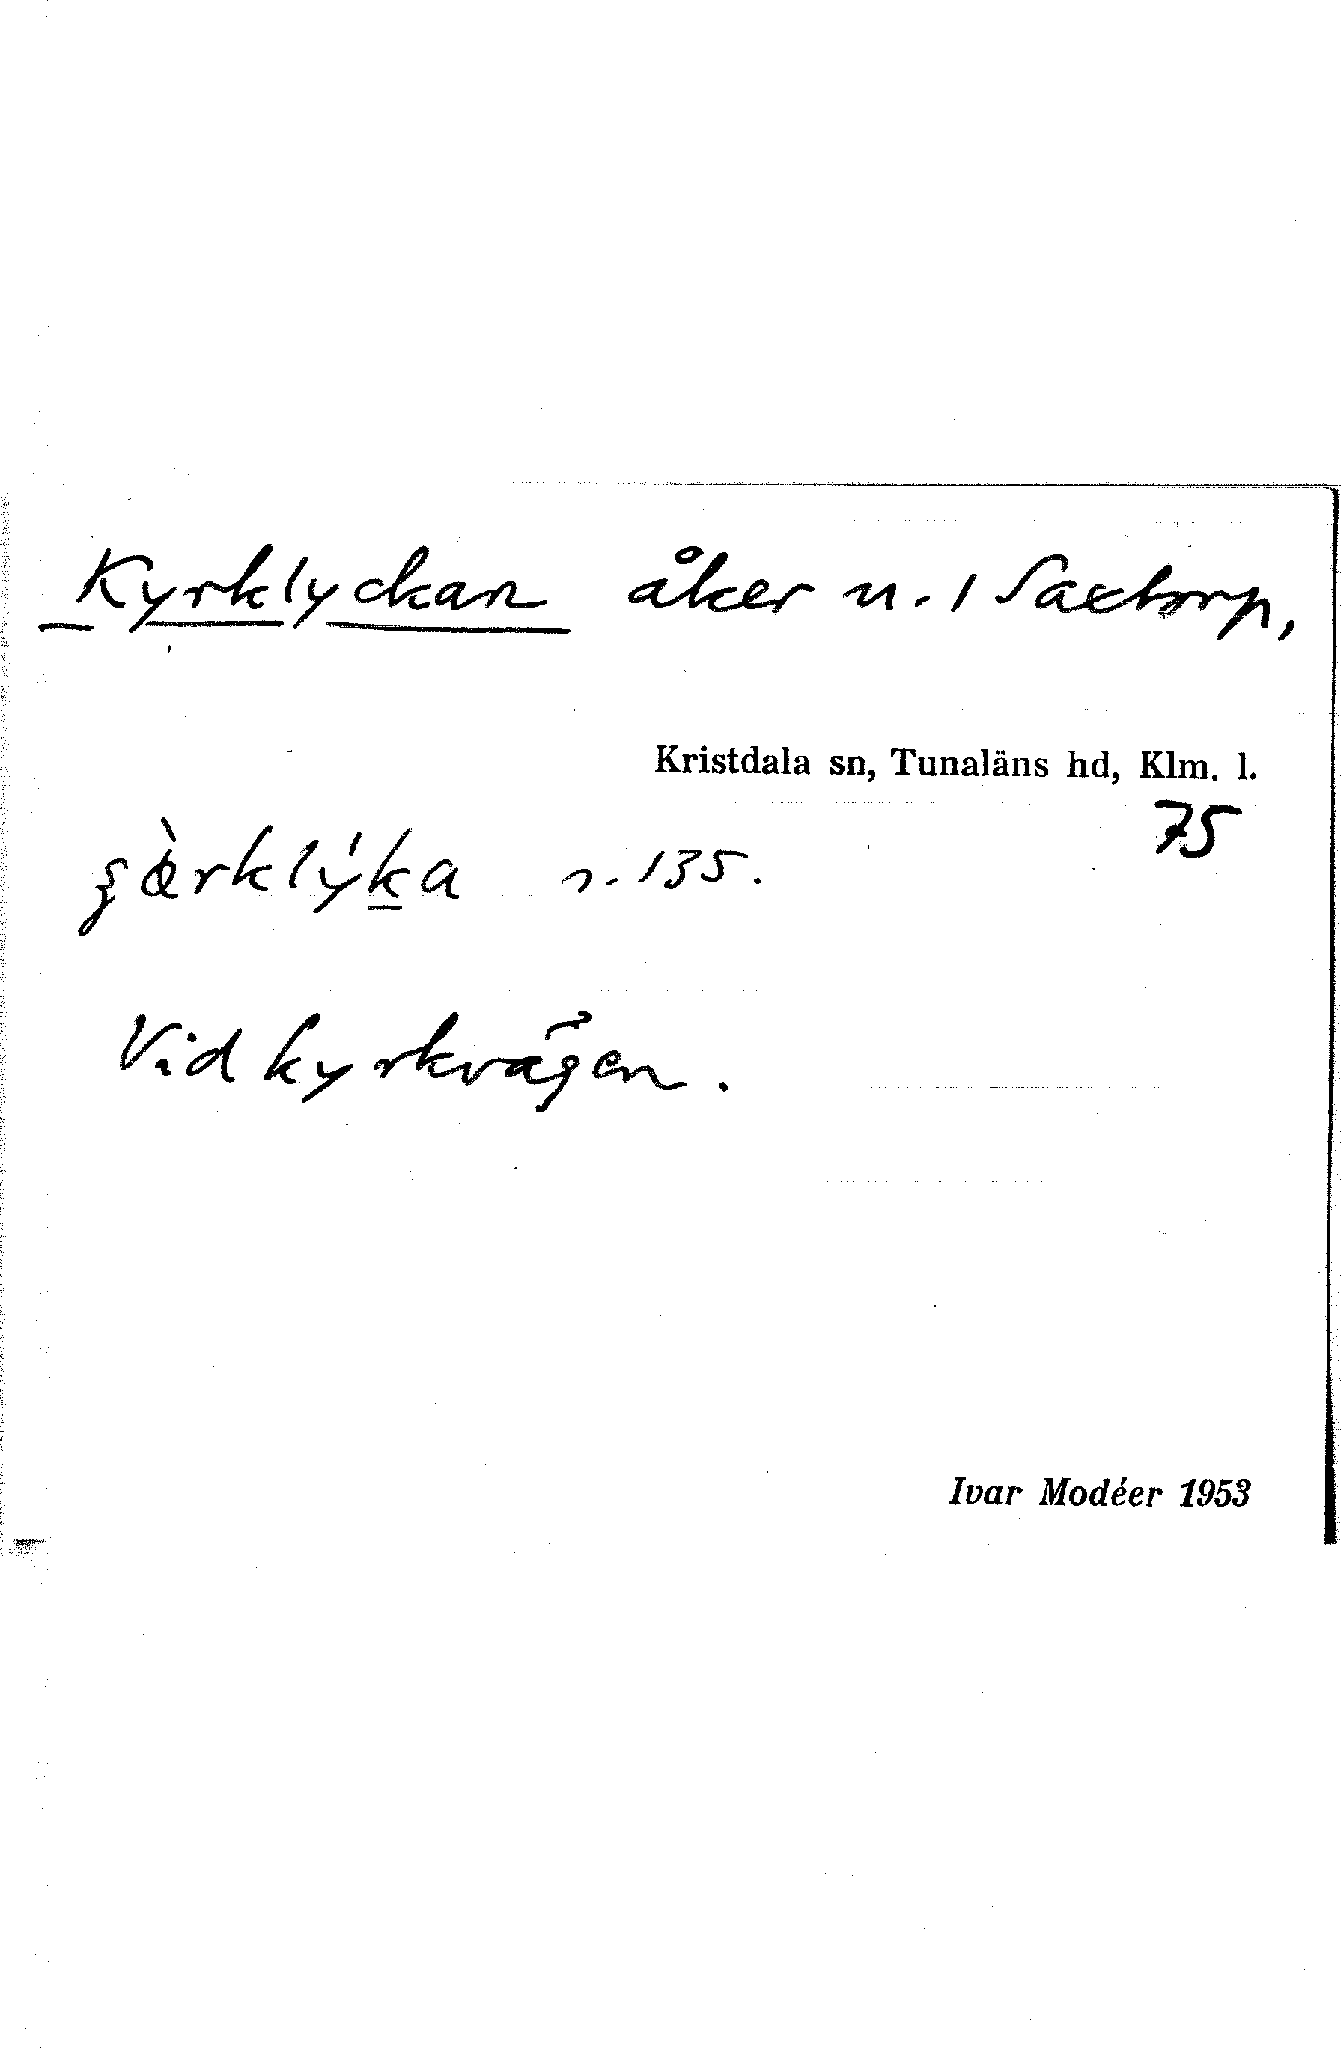 Kyrklyckan åker n. 1 Saxtorp,
Kristdala sn, Tunaläns hd, Klm. l.
75
ꞩœ̀rklýḵa n. 135.
Vid kyrkvägen.
Ivar Modéer 1953